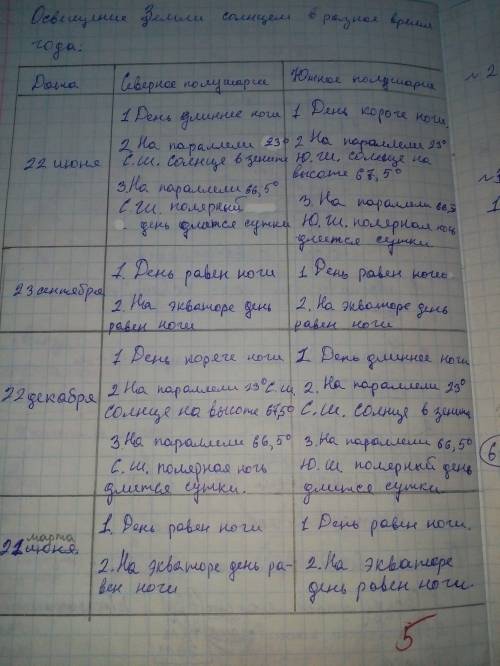 Освещение Земли солнцем в разное время
года:
Дата
Северное полушарие
Южное полушарие
22 июня
1 День длиннее ночи
2 На параллели 23°
С.Ш. солнце в зените
3. На параллели 66,5°
С.Ш. полярный
день длится сутки
1 День короче ночи.
2 На параллели 23°
Ю.Ш. солнце на
высоте 67,5°
3. На параллели 66,5
Ю.Ш. полярная ночь
длится сутки
23 сентября
1. День равен ночи
2. На экваторе день
равен ночи
1 День равен ночи
2. На экваторе день
равен ночи
22 декабря
1 День короче ночи
2 На параллели 23° С.Ш.
солнце на высоте 67,5°
3. На параллели 66,5°
С.Ш. полярная ночь
длится сутки.
1. День длиннее ночи
2. На параллели 23°
С.Ш. солнце в зените
3. На параллели 66,5°
Ю.Ш полярный день
длится сутки
марта
21 июня.
1. День равен ночи
2. На экваторе день ра-
вен ночи
1 День равен ночи.
2. На экваторе
день равен ночи.
5
№2
1
6